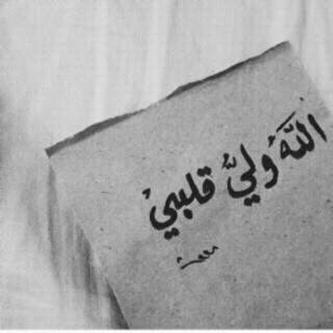 اللَّهُ وَليُّ قلبيْ